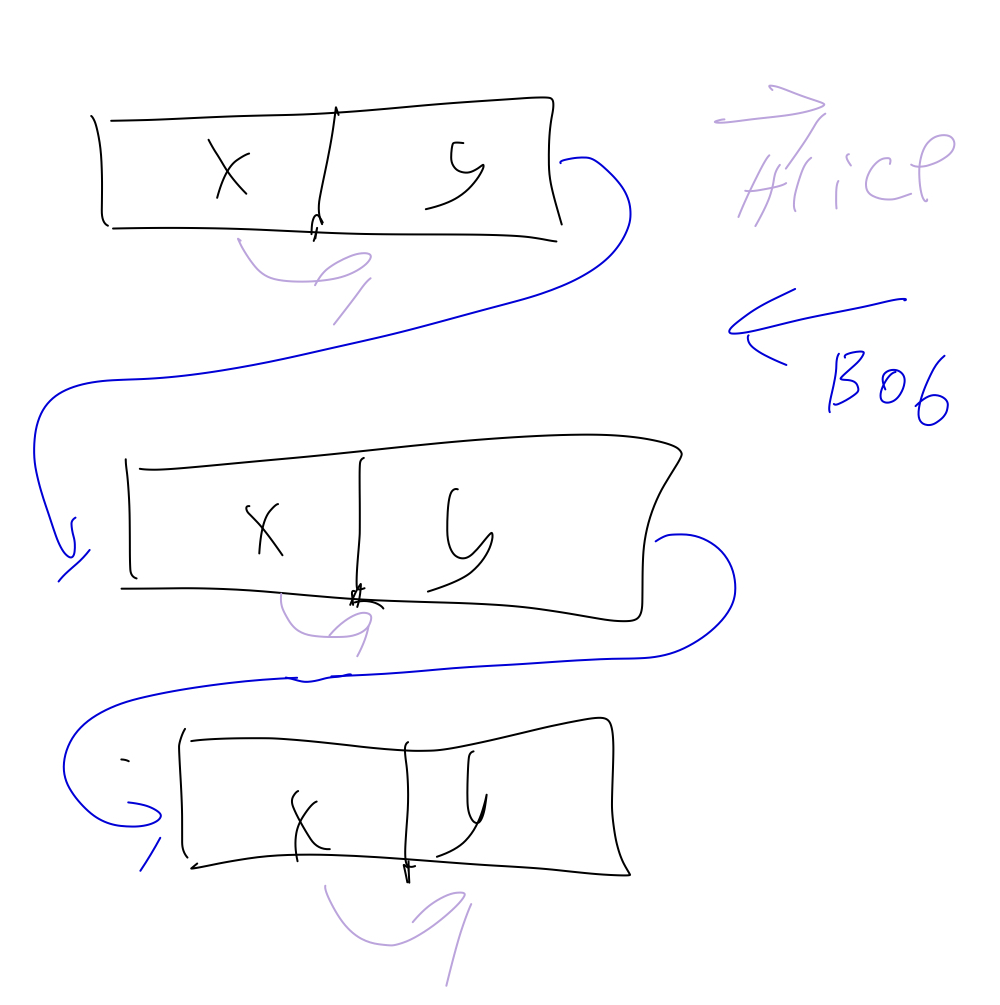 x y
Alice
Bob
x y
x y